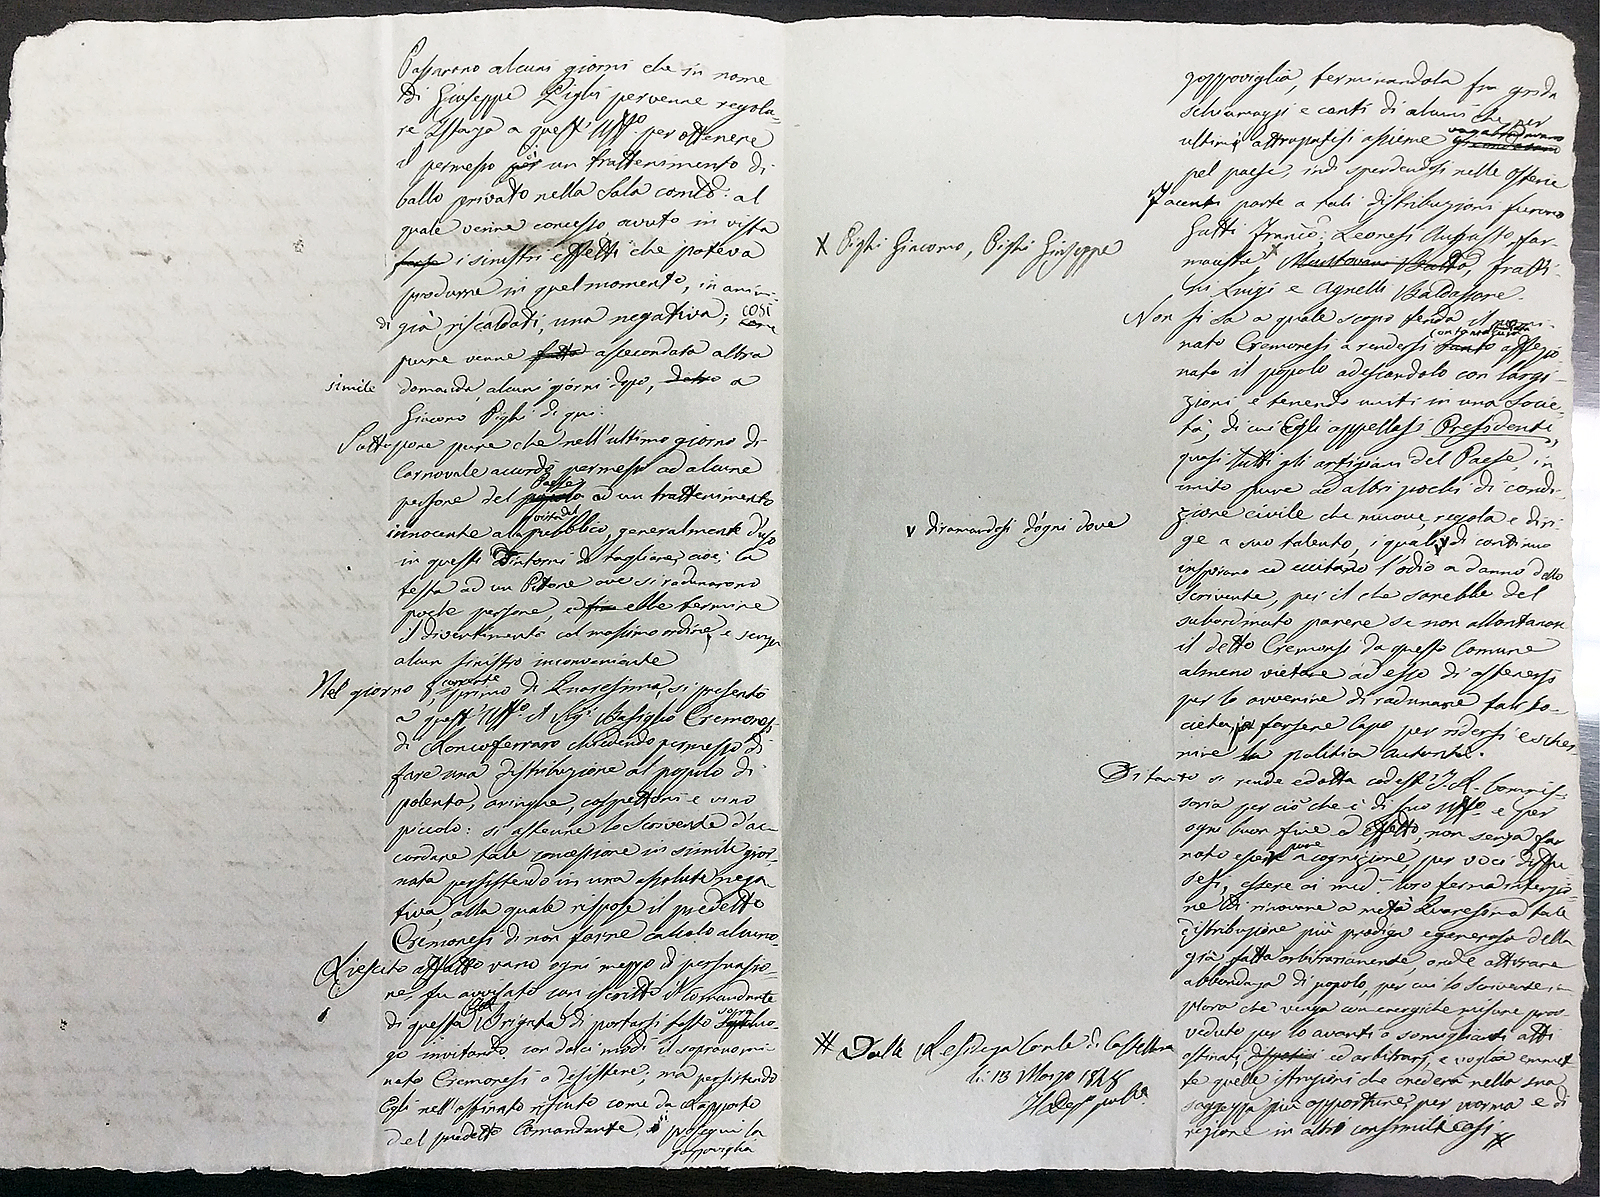 Passarono alcuni giorni che in nome
di Giuseppe Pighi pervenne regola-
re Istanza a quest' Uff.o per ottenere
il permesso per un trattenimento di
ballo privato nella Sala al
quale venne concesso, avuto in vista
forse i sinistri effetti che poteva
produrre in quel momento, in animi
di già riscaldati, una negativa; così
pure venne fatto assecondata altra
simile domanda, alcuni giorni dopo, a
Giacomo Pighi di qui.
Sottopone pure che nell'ultimo giorno di
Carnovale accordò permesso ad alcune
persone del Paese ad un trattenimento
innocente al pubblico, generalmente d'uso
in questi Dintorni di tagliare, cioè, la
testa ad un Pitone ove si radunarono
poche persone, ed ebbe termine
il divertimento col massimo ordine, e senza
alcun sinistro inconveniente
Nel giorno 8 corrente, primo di Quaresima, si presentò
a quest' Uff.o il Sig. Basiglio Cremonesi
di Roncoferraro chiedendo permesso di
fare una distribuzione al popolo di
polenta, aringhe, cospettoni e vino
piccolo: si astenne lo Scrivente d'ac-
cordare tale concessione in simile gior-
nata persistendo in una assoluta nega-
tiva, alla quale rispose il predetto
Cremonesi di non farne calcolo alcuno.
Riescito affatto vano ogni mezzo di persuasio-
ne, fu avvisato con iscritto il Comandante
di questa Brigata di portarsi tosto sopra luo-
go invitando con dolci modi il sopranomi-
nato Cremonesi a desistere, ma persistendo
Egli nell'ostinato rifiuto come da Rapporto
del predetto Comandante, proseguì la
gozzoviglia
X Pighi Giacomo, Pighi Giuseppe
v diramandosi d'ogni dove
# Dalla Residenza Com.le di Castellaro
li 13 Marzo 1848
gozzoviglia, terminandola fra grida
schiamazzi e canti di alcuni che per
ultimi attropatisi assieme vagabondavano
pel paese, indi sperdendosi nelle Osterie
Facenti parte a tali distribuzioni furono
Gatti Franc.o, Leonesi Augusto far-
macista X Mantovani Batta, Fratti-
ni Luigi e Agnelli Baldassare.
Non si sa a quale scopo tenda il nomi-
nato Cremonesi a rendersi tanto affezio-
nato il popolo adescandolo con largi-
zioni e tenendo uniti in una Socie-
tà, di cui Egli appellasi Presidente,
quasi tutti gli artigiani del Paese, in
unito pure ad altri pochi di condi-
zione civile che muove, regola e diri-
ge a suo talento, i quali v di continuo
inspirano ed eccitano l'odio a danno dello
Scrivente, per il che sarebbe del
subordinato parere se non allontanare
il detto Cremonesi da questo Comune
almeno vietare ad esso di astenersi
per lo avvenire di radunare tale So-
cietà, e farsene Capo per ridersi e scher-
nire la politica autorità.
Di tanto si rende edotta codest' I. R. Commis-
saria per ciò che è di suo Uff.o e per
ogni buon fine ed effetto, non senza far
noto essere pure a cognizione, per voci diffu-
sesi, essere ai med.i loro ferma intenzio-
ne di rinovare a metà Quaresima tale
distribuzione più prodiga e generosa della
già fatta arbitrariamente, onde attirare
abbondanza di popolo, per cui lo scrivente im-
plora che venga con energiche misure prov-
veduto per lo avanti a somiglianti atti
ostinati, dispotici ed arbitrarj, e voglia emmet-
te quelle istruzioni che crederà nella sua
saggezza più opportune per norma e di
regione in altri consimili casi #